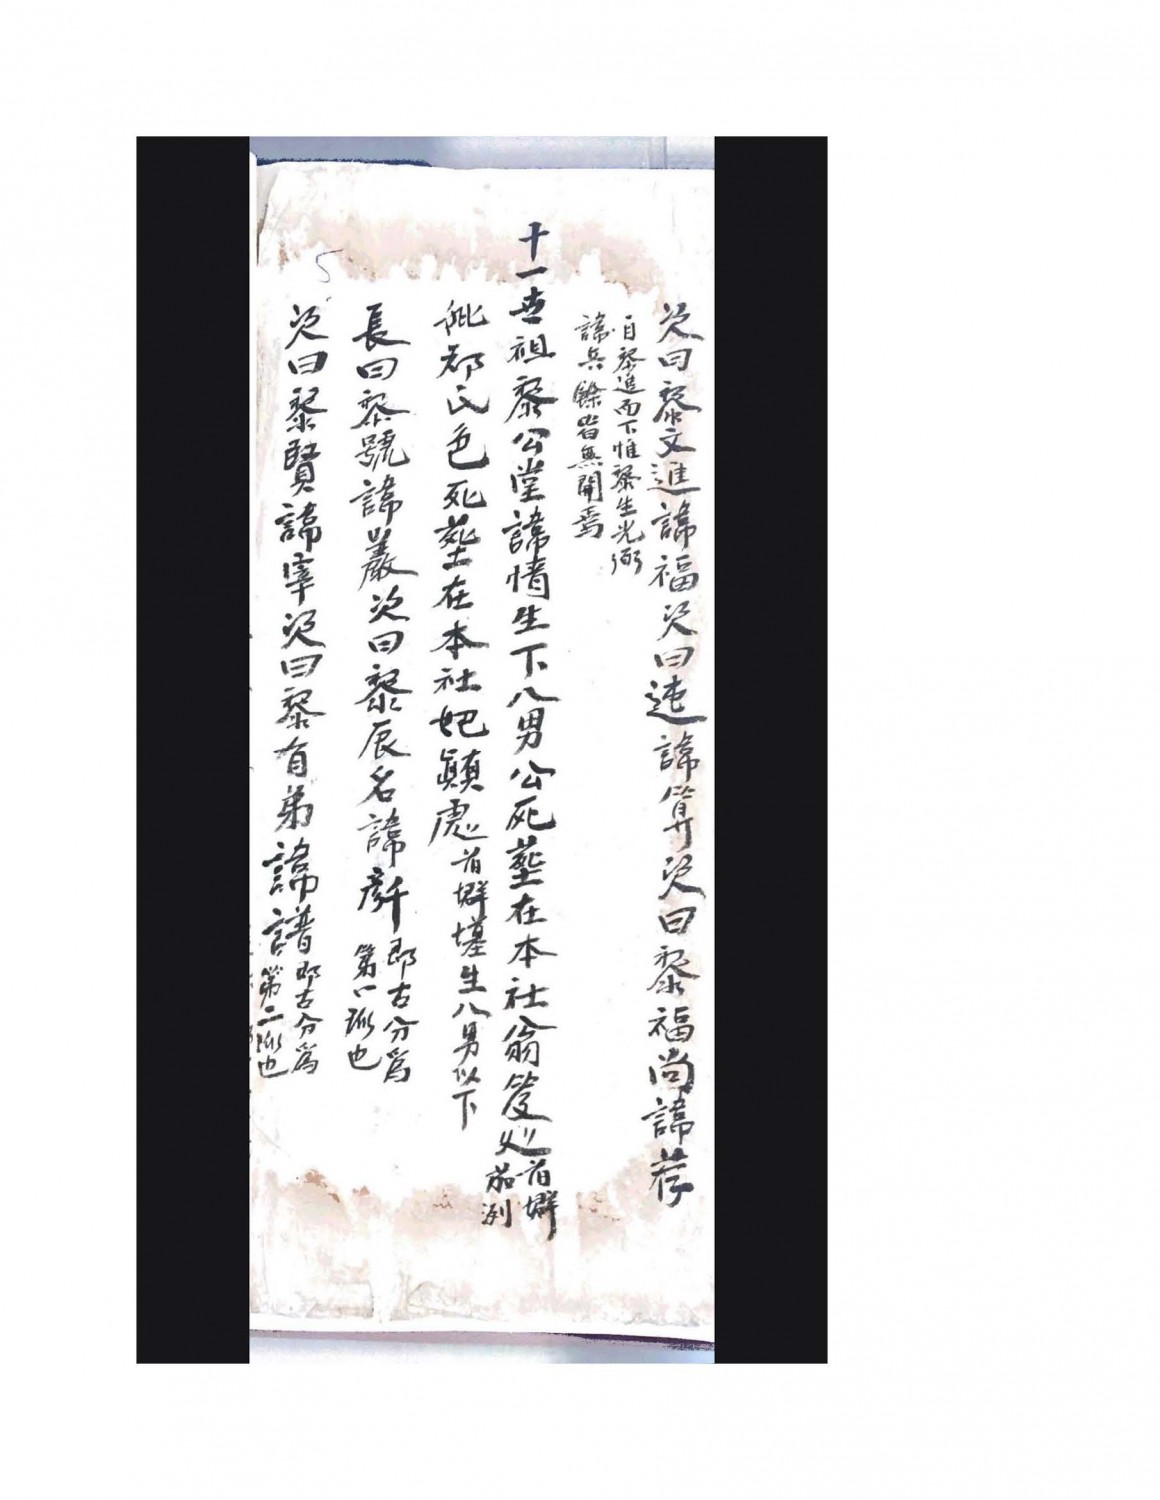 次曰黎文進諱福次曰遁諱算次曰黎福尚諱荐
自黎進而下惟黎生光弼
諱兵餘皆無聞焉
十一世祖黎公堂諱情生下八男公死葬在本社翁笈处首嶭
茄冽
妣郑氏色死葬在本社妑顛處首嶭墓生八男以下
長曰黎號諱嚴次曰黎辰名諱彥即古分爲
第一派也
次曰黎賢諱宰次曰黎有弟諱譜即古分爲
第二派也
5